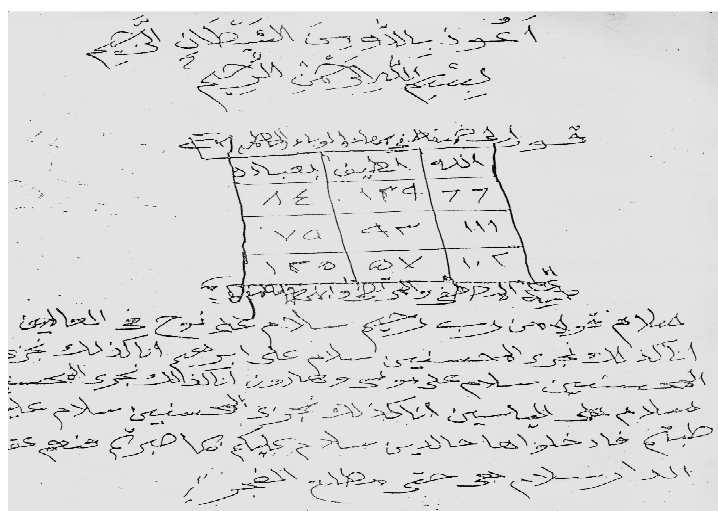 أَعُوذ بِاللهِ مِنَ الشَّيْطَانِ الرَّجِيم
بِسْمِ اللهِ الرَّحْمٰنِ الرَّحِيم
الله لطيف بعباده
٦٦ ١٢٩ ٨٤
١١١ ٩٣ ٧٥
١٠٢ ٥٧ ١٢٠
سلام قولا من رب رحيم سلام على نوح في العالمين
انا كذلك نجزى المحسنين سلام على ابرهيم انا كذلك نجزى
المحسنين سلام على موسى وهارون انا كذالك نجزى المحسنين
سلام على الياسين انا كذلك نجزى المحسنين سلام عليكم
طبتم فادخلواها خالدين سلام عليكم بما صبرتم فنعم عقبى
الدار سلام هى حتى مطلع الفجر